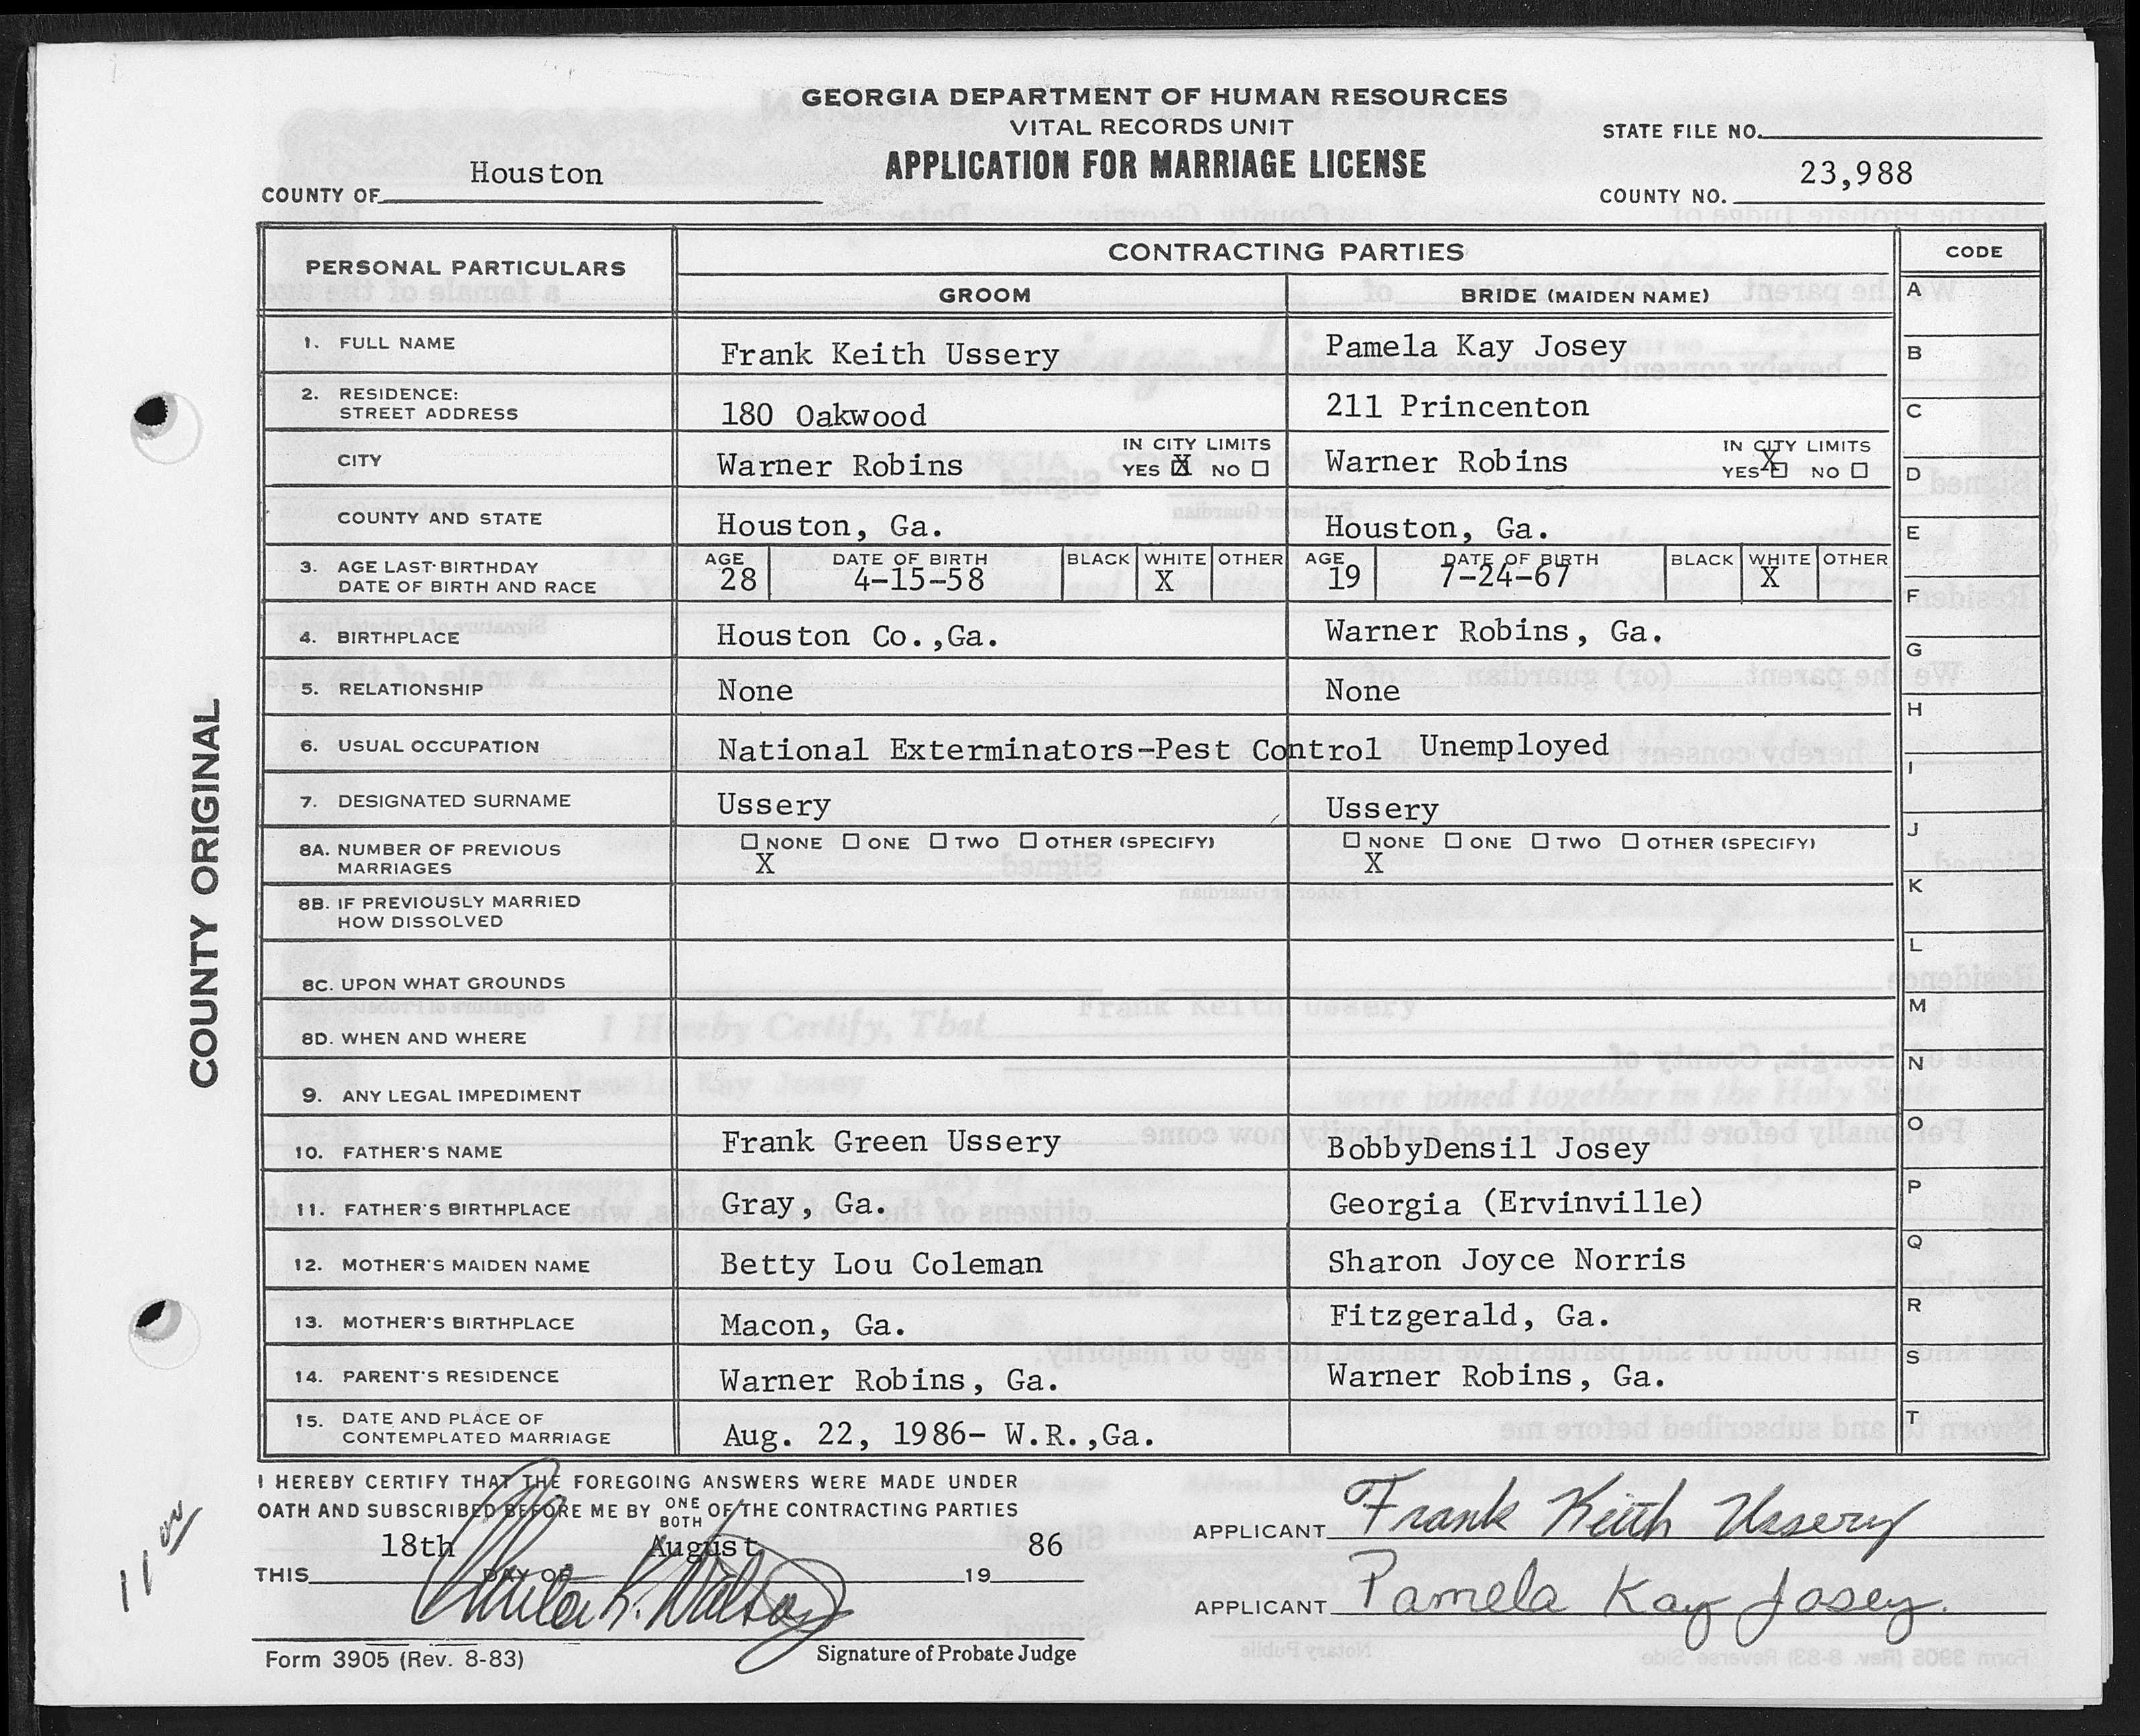 GEORGIA DEPARTMENT OF HUMAN RESOURCES
VITAL RECORDS UNIT
APPLICATION FOR MARRIAGE LICENSE
STATE FILE NO.
COUNTY OF Houston
COUNTY NO. 23,988
PERSONAL PARTICULARS
CONTRACTING PARTIES
CODE
GROOM
BRIDE (MAIDEN NAME)
1. FULL NAME Frank Keith Ussery Pamela Kay Josey
2. RESIDENCE:
STREET ADDRESS 180 Oakwood 211 Princenton
CITY Warner Robins IN CITY LIMITS YES X NO Warner Robins IN CITY LIMITS YES X NO
COUNTY AND STATE Houston, Ga. Houston, Ga.
3. AGE LAST BIRTHDAY
DATE OF BIRTH AND RACE
AGE 28 DATE OF BIRTH 4-15-58 BLACK WHITE X OTHER AGE 19 DATE OF BIRTH 7-24-67 BLACK WHITE X OTHER
4. BIRTHPLACE Houston Co.,Ga. Warner Robins, Ga.
5. RELATIONSHIP None None
6. USUAL OCCUPATION National Exterminators-Pest Control Unemployed
7. DESIGNATED SURNAME Ussery Ussery
8A. NUMBER OF PREVIOUS
MARRIAGES
NONE ONE TWO OTHER (SPECIFY) NONE ONE TWO OTHER (SPECIFY)
X X
8B. IF PREVIOUSLY MARRIED
HOW DISSOLVED
8C. UPON WHAT GROUNDS
8D. WHEN AND WHERE
9. ANY LEGAL IMPEDIMENT
10. FATHER'S NAME Frank Green Ussery BobbyDensil Josey
11. FATHER'S BIRTHPLACE Gray, Ga. Georgia (Ervinville)
12. MOTHER'S MAIDEN NAME Betty Lou Coleman Sharon Joyce Norris
13. MOTHER'S BIRTHPLACE Macon, Ga. Fitzgerald, Ga.
14. PARENT'S RESIDENCE Warner Robins, Ga. Warner Robins, Ga.
15. DATE AND PLACE OF
CONTEMPLATED MARRIAGE Aug. 22, 1986- W.R.,Ga.
A
B
C
D
E
F
G
H
I
J
K
L
M
N
O
P
Q
R
S
T
I HEREBY CERTIFY THAT THE FOREGOING ANSWERS WERE MADE UNDER
OATH AND SUBSCRIBED BEFORE ME BY ONE BOTH OF THE CONTRACTING PARTIES
THIS 18th DAY OF August 19 86
Signature of Probate Judge
Form 3905 (Rev. 8-83)
APPLICANT Frank Keith Ussery
APPLICANT Pamela Kay Josey.
COUNTY ORIGINAL
11 00